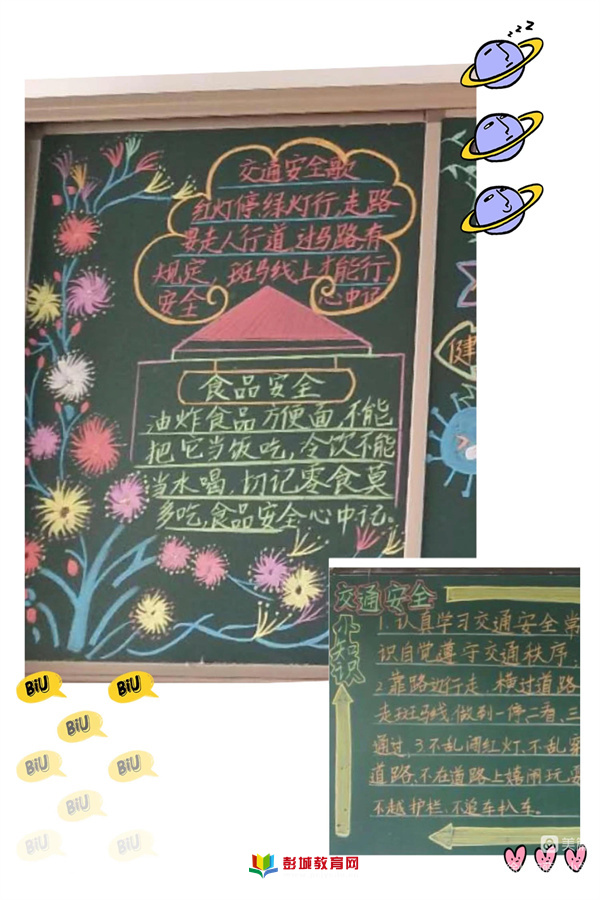 交通安全歌
红灯停绿灯行,走路
要走人行道,过马路有
规定,斑马线上才能行,
安全 心中记
食品安全
油炸食品方便面,不能
把它当饭吃,冷饮不能
当水喝,切记零食莫
多吃,食品安全心中记。
健
交通安全
小知识
1.认真学习交通安全常
识自觉遵守交通秩序;
2.靠路边行走,横过道路
走斑马线,做到一停二看、三
通过,3.不乱闯红灯,不乱穿
道路、不在道路上嬉闹玩耍
不越护栏、不追车扒车。
zzZ
BiU
BiU
BiU
BiU
BiU
BiU
BiU
BiU
彭城教育网
美